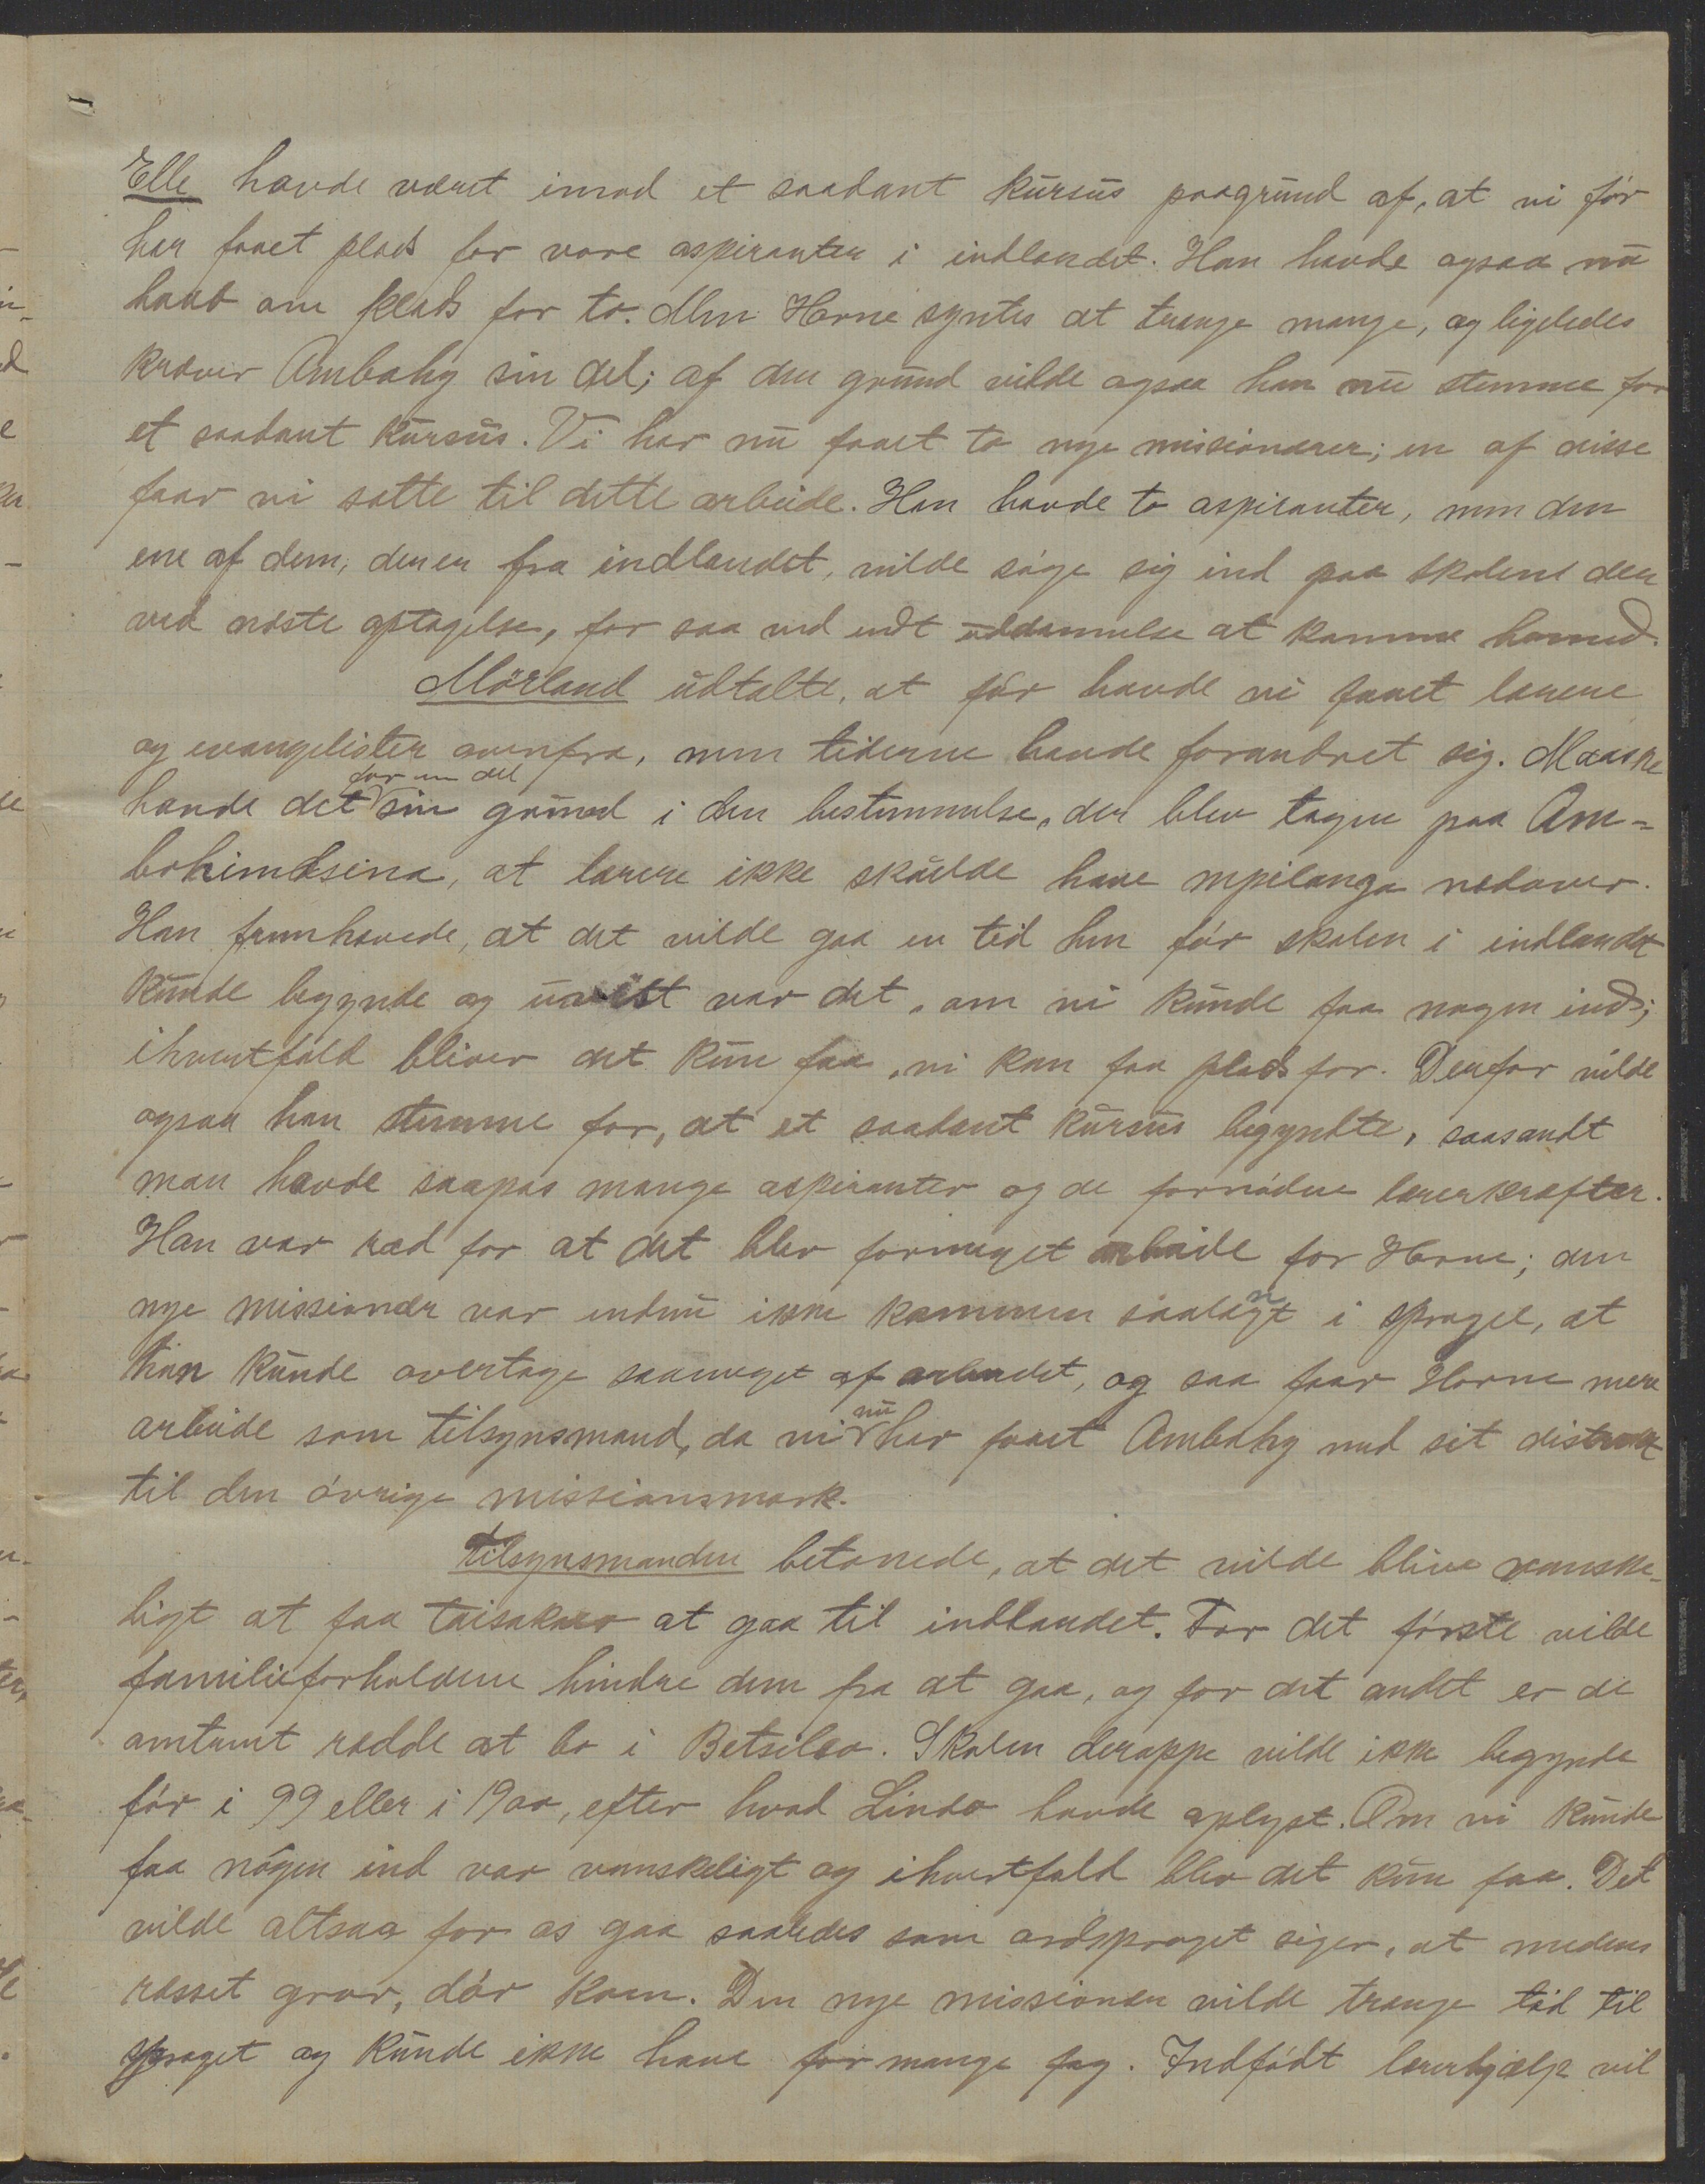 Elle havde været imod et saadant kursus paagrund af, at vi før
har faaet plads for vore aspiranter i indlandet. Han havde ogsaa nu
haab om plads for to. Men Horne syntes at trænge mange, og ligeledes
kræver Ambahy sin del; af den grund vilde ogsaa han nu stemme for
et saadant kursus. Vi har nu faaet to nye missionærer; en af disse
faar vi sætte til dette arbeide. Han havde to aspiranter, men den
ene af dem, der er fra indlandet, vilde søge sig ind paa skolene der
ved næste optagelse, for saa ved endt uddannelse at komme herned.
Mørland udtalte, at før havde vi faaet lærere
og evangelister ovenfra, men tiderne havde forandret sig. Maaske
havde det for en del sin grund i den bestemmelse, der blev tagen paa Am-
bohimasina, at lærere ikke skulde have mpilanga nedover.
Han fremhævede, at det vilde gaa en tid hen før skolen i indlandet
kunde begynde og uvist var det, om vi kunde faa nogen ind;
ihvertfald bliver det kun faa, vi kan faa plads for. Derfor vilde
ogsaa han stemme for, at et saadant kursus begyndte, saasandt
man havde saapas mange aspiranter og de fornødne lærerkræfter.
Han var ræd for at det blev formeget arbeide for Horne; den
nye missionær var endnu ikke kommen saalangt i sproget, at
han kunde overtage saameget af arbeidet, og saa faar Horne mere
arbeide som tilsynsmand, da vi nu har faaet Ambahy med sit distrikt
til den øvrige missionsmark.
Tilsynsmanden betonede, at det vilde blive vanske-
ligt at faa taisakaer at gaa til indlandet. For det første vilde
familieforholdene hindre dem fra at gaa, og for det andet er de
omtrent rædde at bo i Betsileo. Skolen deroppe vilde ikke begynde
før i 99 eller i 1900, efter hvad Lindo havde oplyst. Om vi kunde
faa nogen ind var vanskeligt og ihvertfald blev det kun faa. Det
vilde altsaa for os gaa saaledes som ordsproget siger, at medens
græsset gror, dør koen. Den nye missionær vilde trænge tid til
sproget og kunde ikke have for mange fag. Indfødt lærerhjælp vil